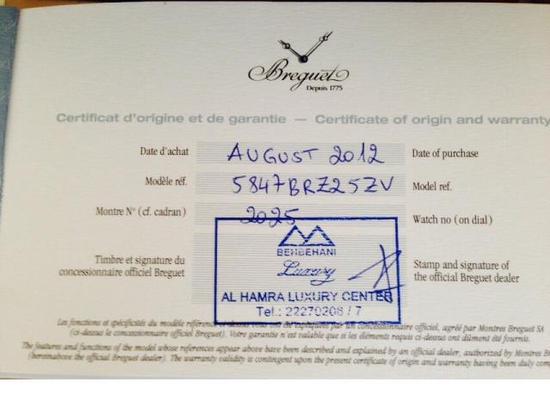 Breguet
Depuis 1775
Certificat d'origine et de garantie — Certificate of origin and warranty
Date d'achat AUGUST 2012 Date of purchase
Modèle réf. 5847BRZ25ZV Model ref.
Montre N° (cf. cadran) 2025 Watch no (on dial)
BEHBEHANI
Luxury
Timbre et signature du Stamp and signature of
concessionnaire officiel Breguet the official Breguet dealer
AL HAMRA LUXURY CENTER
Tel.: 22270206 / 7
Les fonctions et spécificités du modèle référencé ci-dessus vous ont été expliquées par un concessionnaire officiel, agréé par Montres Breguet SA
(ci-dessus le concessionnaire officiel Breguet). Votre garantie n'est valable que si les éléments requis ci-dessus ont dûment été fournis.
The features and functions of the model whose references appear above have been described and explained by an official dealer, authorized by Montres
(hereinabove the official Breguet dealer). The warranty validity is contingent upon the present certificate of origin and warranty having been duly